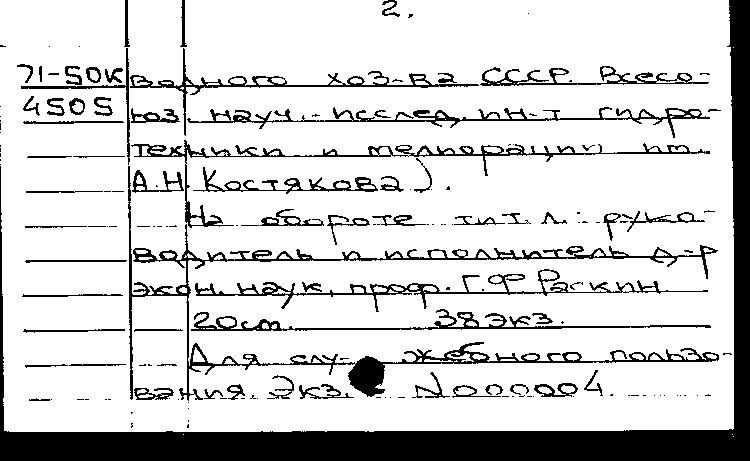 2.
71-50К водного хоз-ва СССР. Всесо-
4505 юз. науч.-исслед. ин-т гидро-
техники и мелиорации им.
А.Н. Костякова).
На обороте тит. л.: руко-
водитель и исполнитель д-р
экон. наук, проф. Г.Ф Раскин
20см. 38экз.
Для слу- жебного пользо-
вания. Экз. N000004.